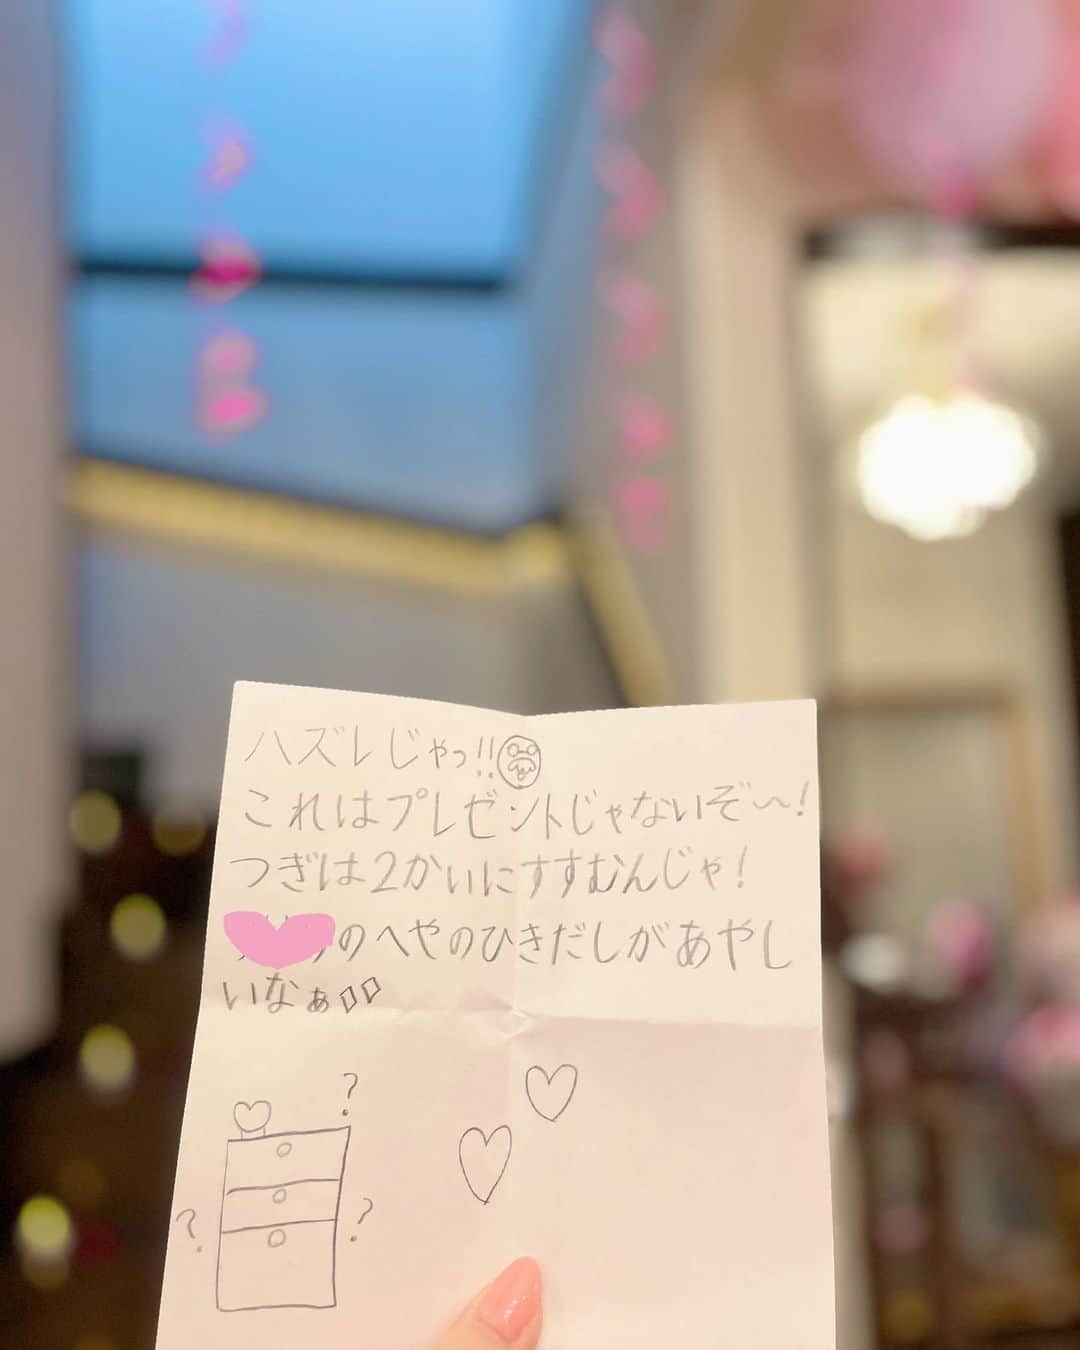 ハズレじゃっ!!
これはプレゼントじゃないぞ〜!
つぎは2かいにすすむんじゃ!
のへやのひきだしがあやし
いなぁ
?
? ?